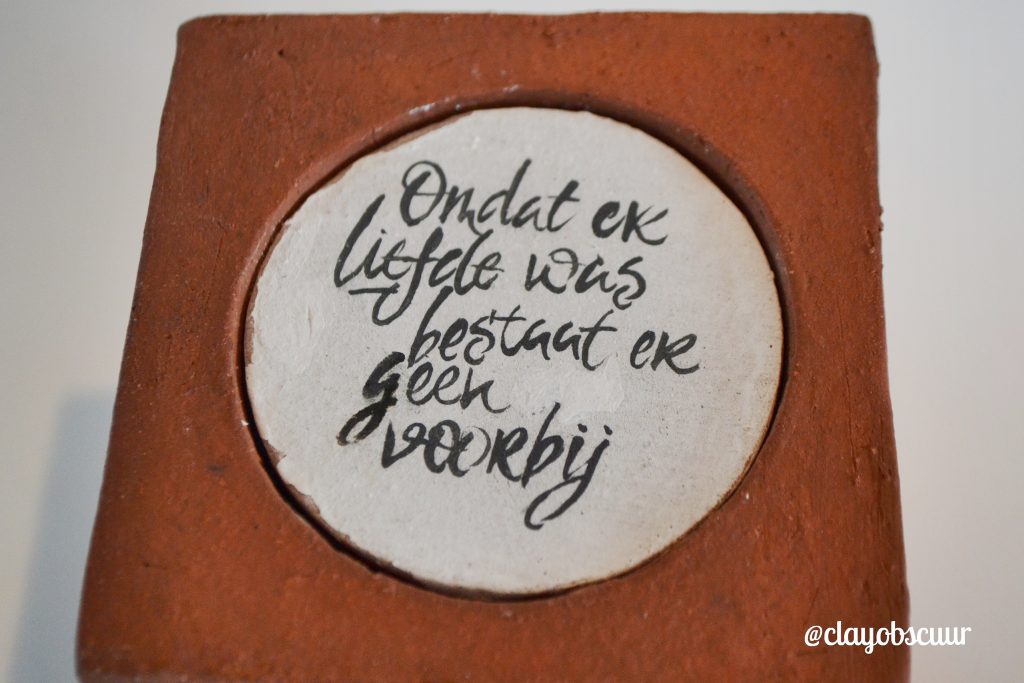 Omdat er
liefde was
bestaat er
geen
voorbij
@clayobscuur